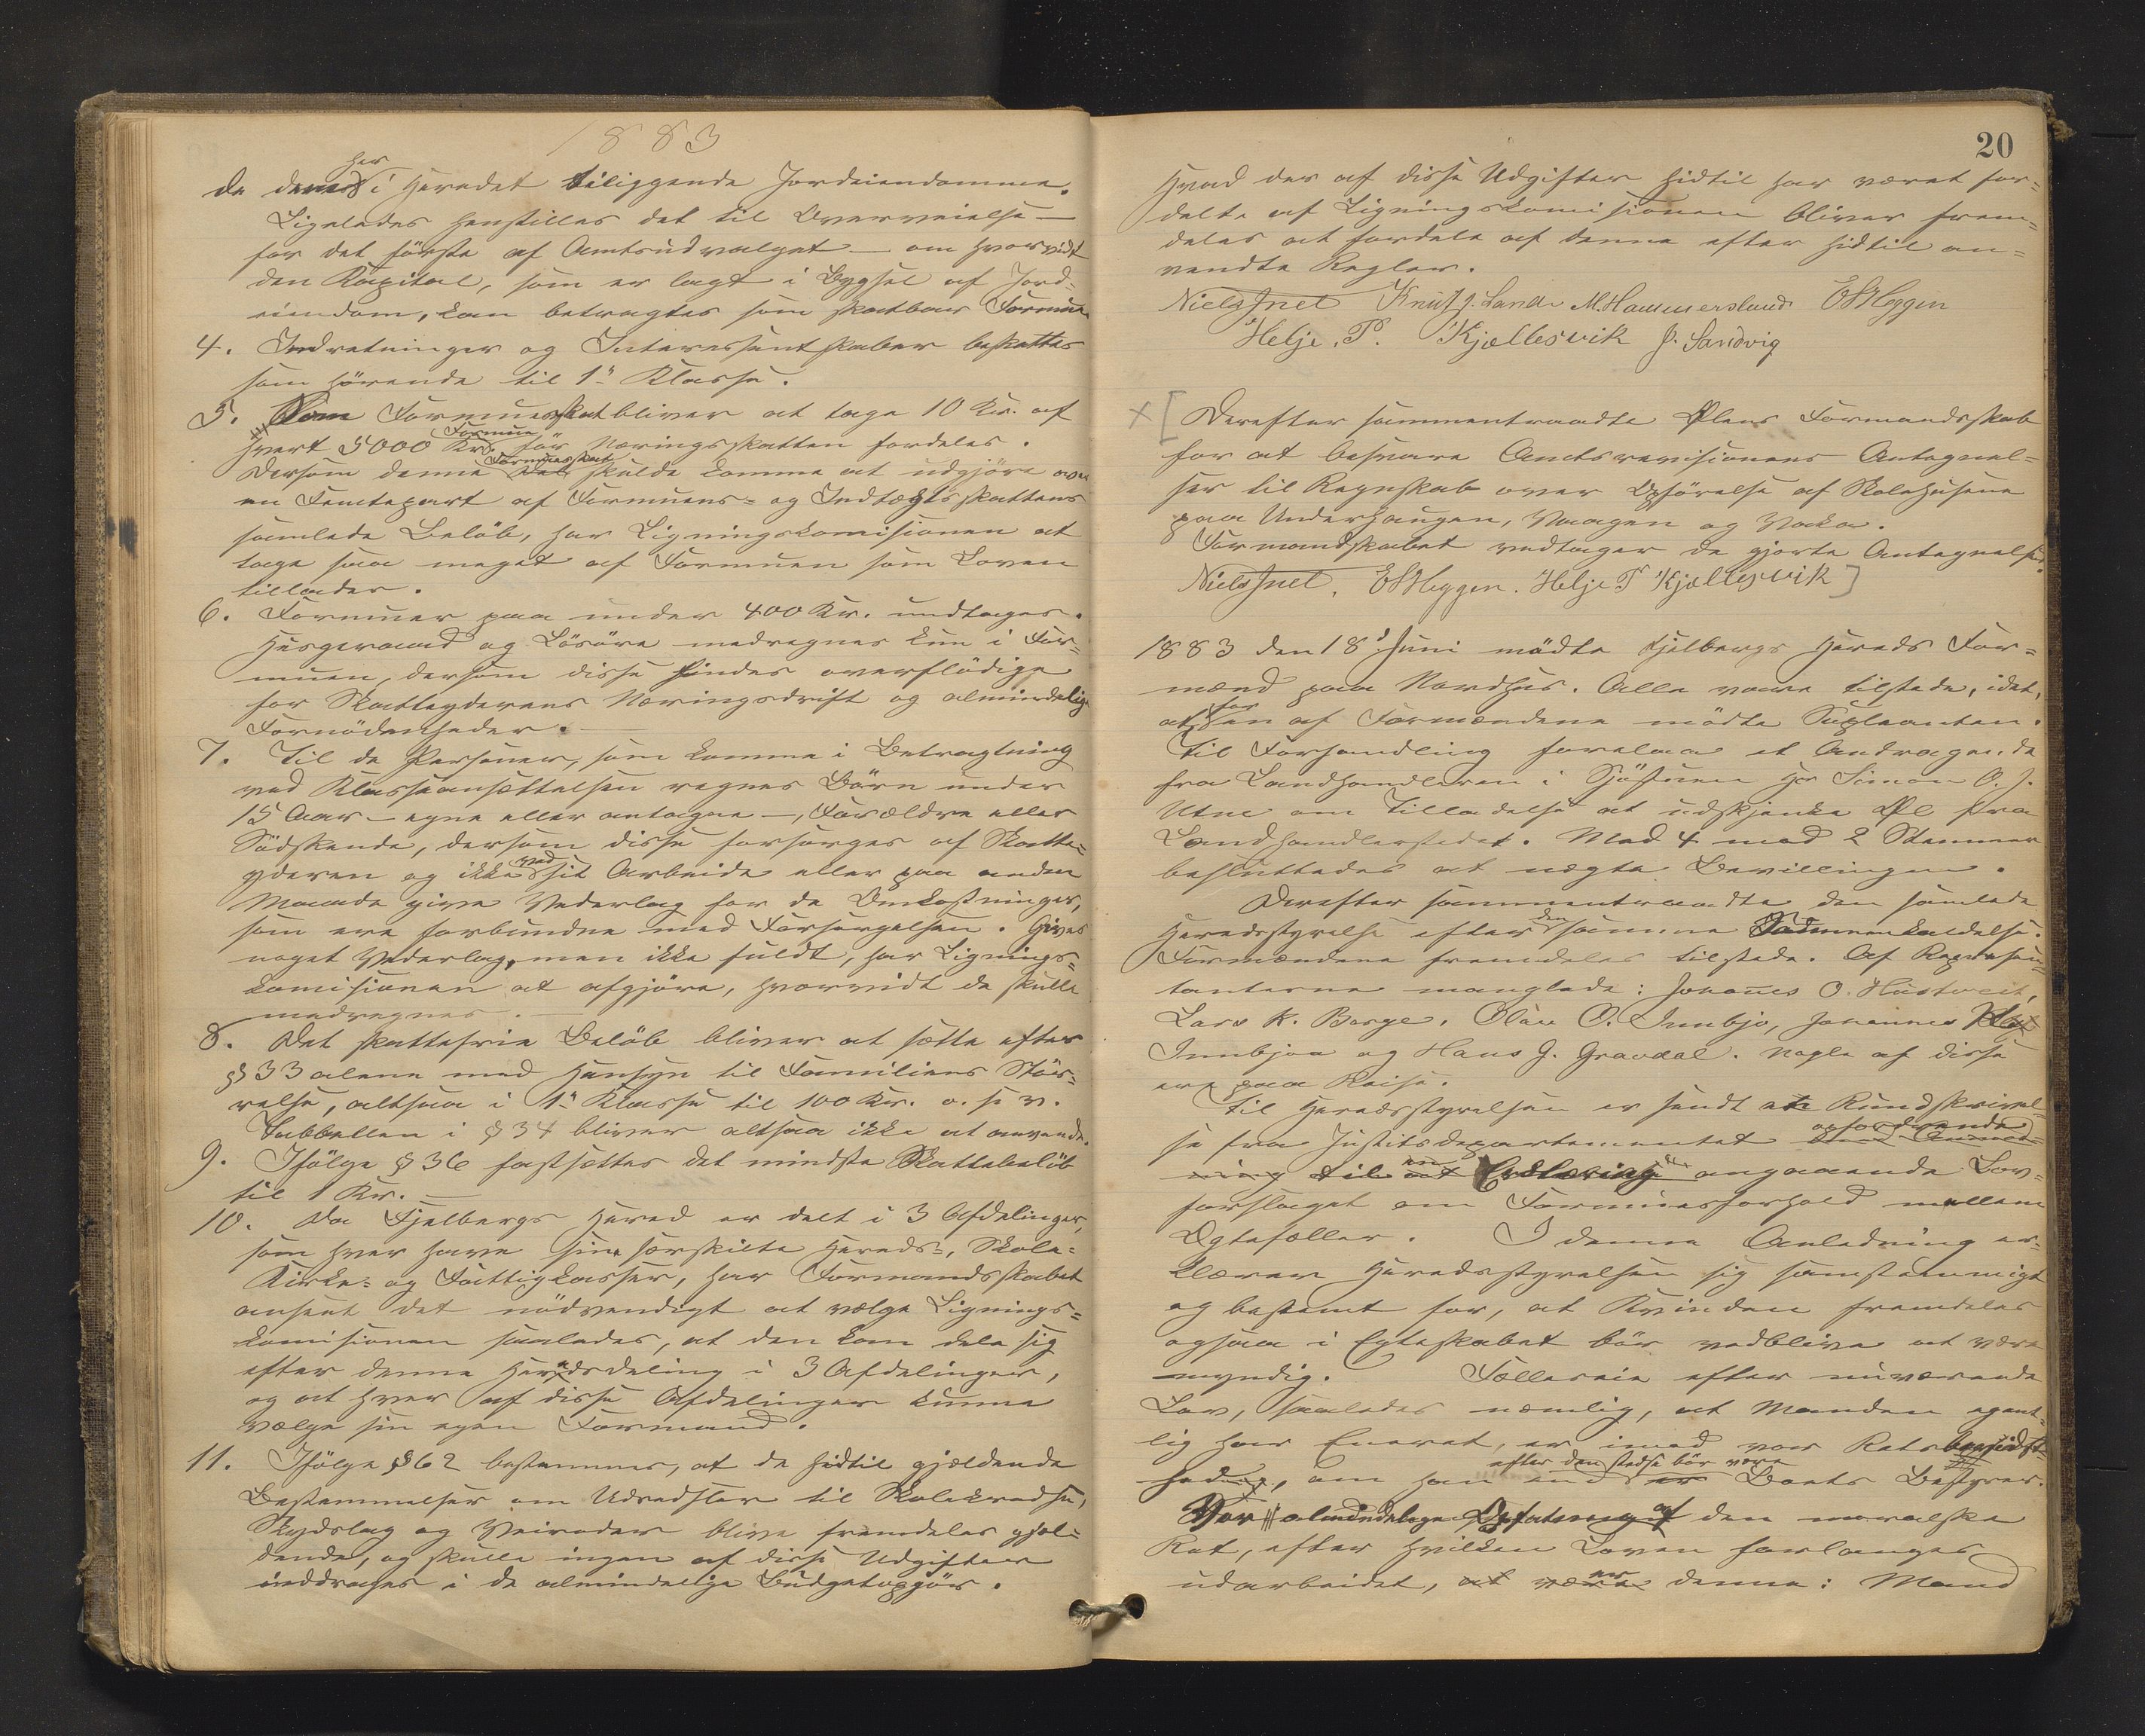 1883
de deres her i Heredet beliggende Jordeiendomme.
Ligeledes henstilles det til Overveielse —
for det første af Amtsudvalget — om hvorvidt
den Kapital, som er lagt i Bygsel af Jord=
eiendom, kan betragtes som skatbar Formue
4. Indretninger og Interessentskaber beskattes
som hörende til 1ste Klasse.
5. Som Formuesskat bliver at tage 10 Kr. af
hvert 5000 Kr. Formue för Næringsskatten fordeles.
Dersom denne Formuesskat skulde komme at udgjöre over
en Femtepart af Formues= og Indtægtsskattens
samlede Belöb, har Ligningskomisionen at
tage saa meget af Formuen som Loven
tillader.
6. Formuer paa under 400 Kr. undtages.
Husgeraad og Lösöre medregnes kun i For=
muen, dersom disse findes overflödige
for Skatteyderens Næringsdrift og almindelige
Fornödenheder. —
7. Til de Personer, som komme i Betragtning
ved Klasseansættelsen regnes Börn under
15 Aar — egne eller antagne —, Forældre eller
Södskende, dersom disse forsörges af Skatte=
yderen og ikke ved sit Arbeide eller paa anden
Maade give Vederlag for de Omkostninger,
som ere forbundne med Forsörgelsen. Gives
noget Vederlag, men ikke fuldt, har Lignings=
komisionen at afgjöre, hvorvidt de skulle
medregnes. —
8. Det skattefrie Belöb bliver at sætte efter
§ 33 alene med Hensyn til Familiens Stör=
relse, altsaa i 1ste Klasse til 100 Kr. o. s. v.
Tabbellen i § 34 bliver altsaa ikke at anvende.
9. Ifölge § 36 fastsættes det mindste Skattebelöb
til 1 Kr. —
10. Da Fjelbergs Hered er delt i 3 Afdelinger,
som hver have sine særskilte Hereds=, Skole=
Kirke= og Fattigkasser, har Formandsskabet
anseet det nödvendigt at vælge Lignings=
komisionen saaledes, at den kan dele sig
efter denne Heredsdeling i 3 Afdelinger,
og at hver af disse Afdelinger kunne
vælge sin egen Formand.
11. Ifölge § 62 bestemmes, at de hidtil gjældende
Bestemmelser om Udredsler til Skolekredse,
Skydslag og Veiroder blive fremdeles gjæl=
dende, og skulle ingen af disse Udgifter
inddrages i de almindelige Budgetopgjör.
20
Hvad der af disse Udgifter hidtil har været for=
delte af Ligningskomisionen bliver frem=
deles at fordele af denne efter hidtil an=
vendte Regler.
Niels Juel Knut J. Lande M. Hammersland E Heggen
Helje. P. Kjællesvik J. Sandvig
× [ Derefter sammentraadte Ølens Formandsskab
for at besvare Amtsrevisionens Antegnel=
ser til Regnskab over Opförelse af Skolehusene
paa Underhaugen, Vaagen og Vaka.
Formandskabet vedtager de gjorte Antegnelser.
Niels Juel, E Heggen. Helje P Kjællesvik ]
1883 den 18de Juni mödte Fjelbergs Hereds For=
mænd paa Nordhus. Alle vare tilstede, idet,
at for Een af Formændene mödte Supleanten.
Til Forhandling forelaa et Andragende
fra Landhandleren i Sjöstuen Hr Simon O. J.
Utne om Tilladelse at udskjenke Øl fra
Landhandlerstedet. Med 4 mod 2 Stemmer
besluttedes at nægte Bevillingen.
Derefter sammentraadte den samlede
Heredsstyrelse efter den samme Sammenkaldelse.
Formændene fremdeles tilstede. Af Repræsen=
tanterne manglede: Johannes O. Hustveit,
Lars K. Berge, Olav O. Innbjo, Johannes
Innbjoa og Hans J. Gravdal. Nogle af disse
ere paa Reise.
Til Heredsstyrelsen er sendt en Rundskrivel=
se fra Justitsdepartementet opfordrende
til en Erklæring angaaende Lov=
forslaget om Formuesforhold mellem
Ægtefæller. I denne Anledning er=
klærer Heredsstyrelsen sig samstemmigt
og bestemt for, at Kvinden fremdeles
ogsaa i Egteskabet bör vedblive at være
myndig. Fælleseie efter nuværende
Lov, saaledes nemlig, at Manden egent=
lig har Eneret, er imod vor Retsbevidst=
hed, om han end efter den stedse bör være Boets Bestyrer.
Vor almindelige Opfatning af den moralske
Ret, efter hvilken Loven forlanges
udarbeidet, er denne: Mand